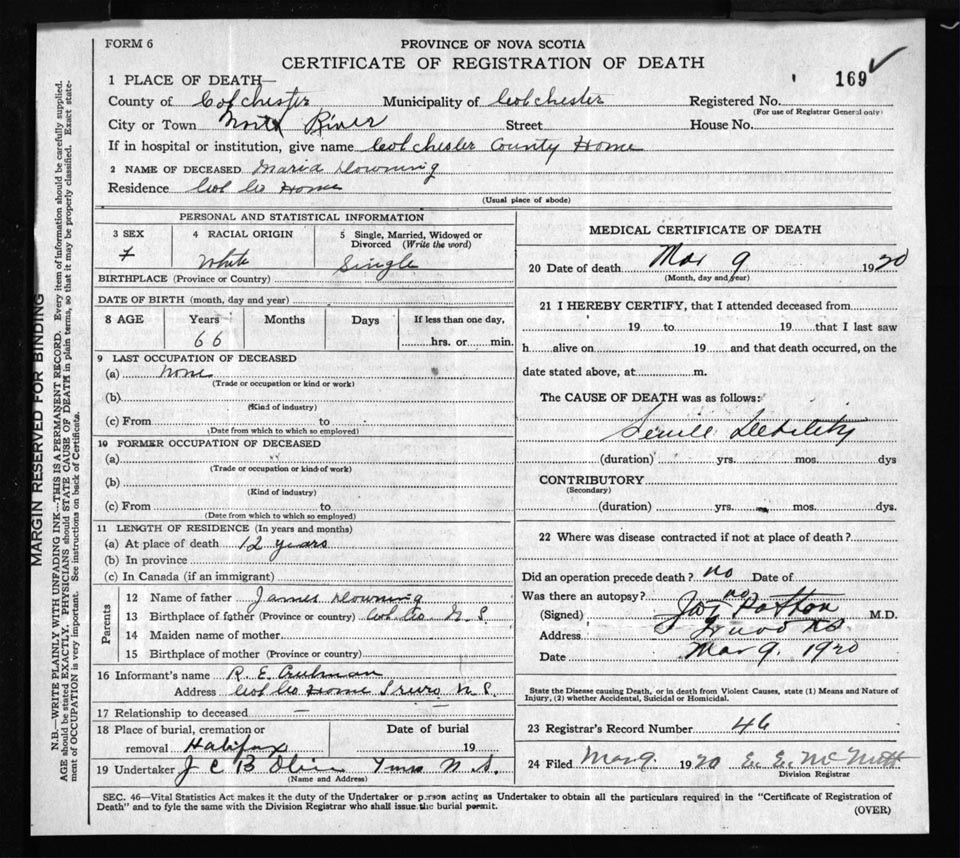 FORM 6
PROVINCE OF NOVA SCOTIA
CERTIFICATE OF REGISTRATION OF DEATH
169
1 PLACE OF DEATH—
County of Colchester Municipality of Colchester Registered No.
(For use of Registrar General only)
City or Town North River Street House No.
If in hospital or institution, give name Colchester County Home
2 NAME OF DECEASED Maria Downing
Residence Col Co Home
(Usual place of abode)
PERSONAL AND STATISTICAL INFORMATION
3 SEX 4 RACIAL ORIGIN 5 Single, Married, Widowed or Divorced (Write the word)
F White Single
BIRTHPLACE (Province or Country)
DATE OF BIRTH (month, day and year)
8 AGE Years Months Days If less than one day,
66 hrs. or min.
9 LAST OCCUPATION OF DECEASED
(a) None
(Trade or occupation or kind or work)
(b)
(Kind of industry)
(c) From to
(Date from which to which so employed)
10 FORMER OCCUPATION OF DECEASED
(a)
(Trade or occupation or kind of work)
(b)
(Kind of industry)
(c) From to
(Date from which to which so employed)
11 LENGTH OF RESIDENCE (In years and months)
(a) At place of death 12 years
(b) In province
(c) In Canada (if an immigrant)
Parents
12 Name of father James Downing
13 Birthplace of father (Province or country) Col Co. N. S.
14 Maiden name of mother
15 Birthplace of mother (Province or country)
16 Informant's name R. E.
Address Col Co Home Truro N S.
17 Relationship to deceased —
18 Place of burial, cremation or Date of burial
removal Halifax 19
19 Undertaker J C B Olive Truro N. S.
(Name and Address)
MEDICAL CERTIFICATE OF DEATH
20 Date of death Mar 9 1920
(Month, day and year)
21 I HEREBY CERTIFY, that I attended deceased from
19 to 19 that I last saw
h alive on 19 and that death occurred, on the
date stated above, at m.
The CAUSE OF DEATH was as follows:
Senile Debility
(duration) yrs. mos. dys
CONTRIBUTORY
(Secondary)
(duration) yrs. mos. dys.
22 Where was disease contracted if not at place of death?
Did an operation precede death? no Date of
Was there an autopsy? no
(Signed) Patton M.D.
Address Truro NS
Date Mar 9. 1920
State the Disease causing Death, or in death from Violent Causes, state (1) Means and Nature of
Injury, (2) whether Accidental, Suicidal or Homicidal.
23 Registrar's Record Number 46
24 Filed Mar 9 1920 E. E. McNutt
Division Registrar
SEC. 46—Vital Statistics Act makes it the duty of the Undertaker or person acting as Undertaker to obtain all the particulars required in the "Certificate of Registration of
Death" and to fyle the same with the Division Registrar who shall issue the burial permit.
(OVER)
MARGIN RESERVED FOR BINDING
N.B.—WRITE PLAINLY WITH UNFADING INK—THIS IS A PERMANENT RECORD. Every item of information should be carefully supplied.
AGE should be stated EXACTLY. PHYSICIANS should STATE CAUSE OF DEATH in plain terms, so that it may be properly classified. Exact state-
ment of OCCUPATION is very important. See instructions on back of Certificate.